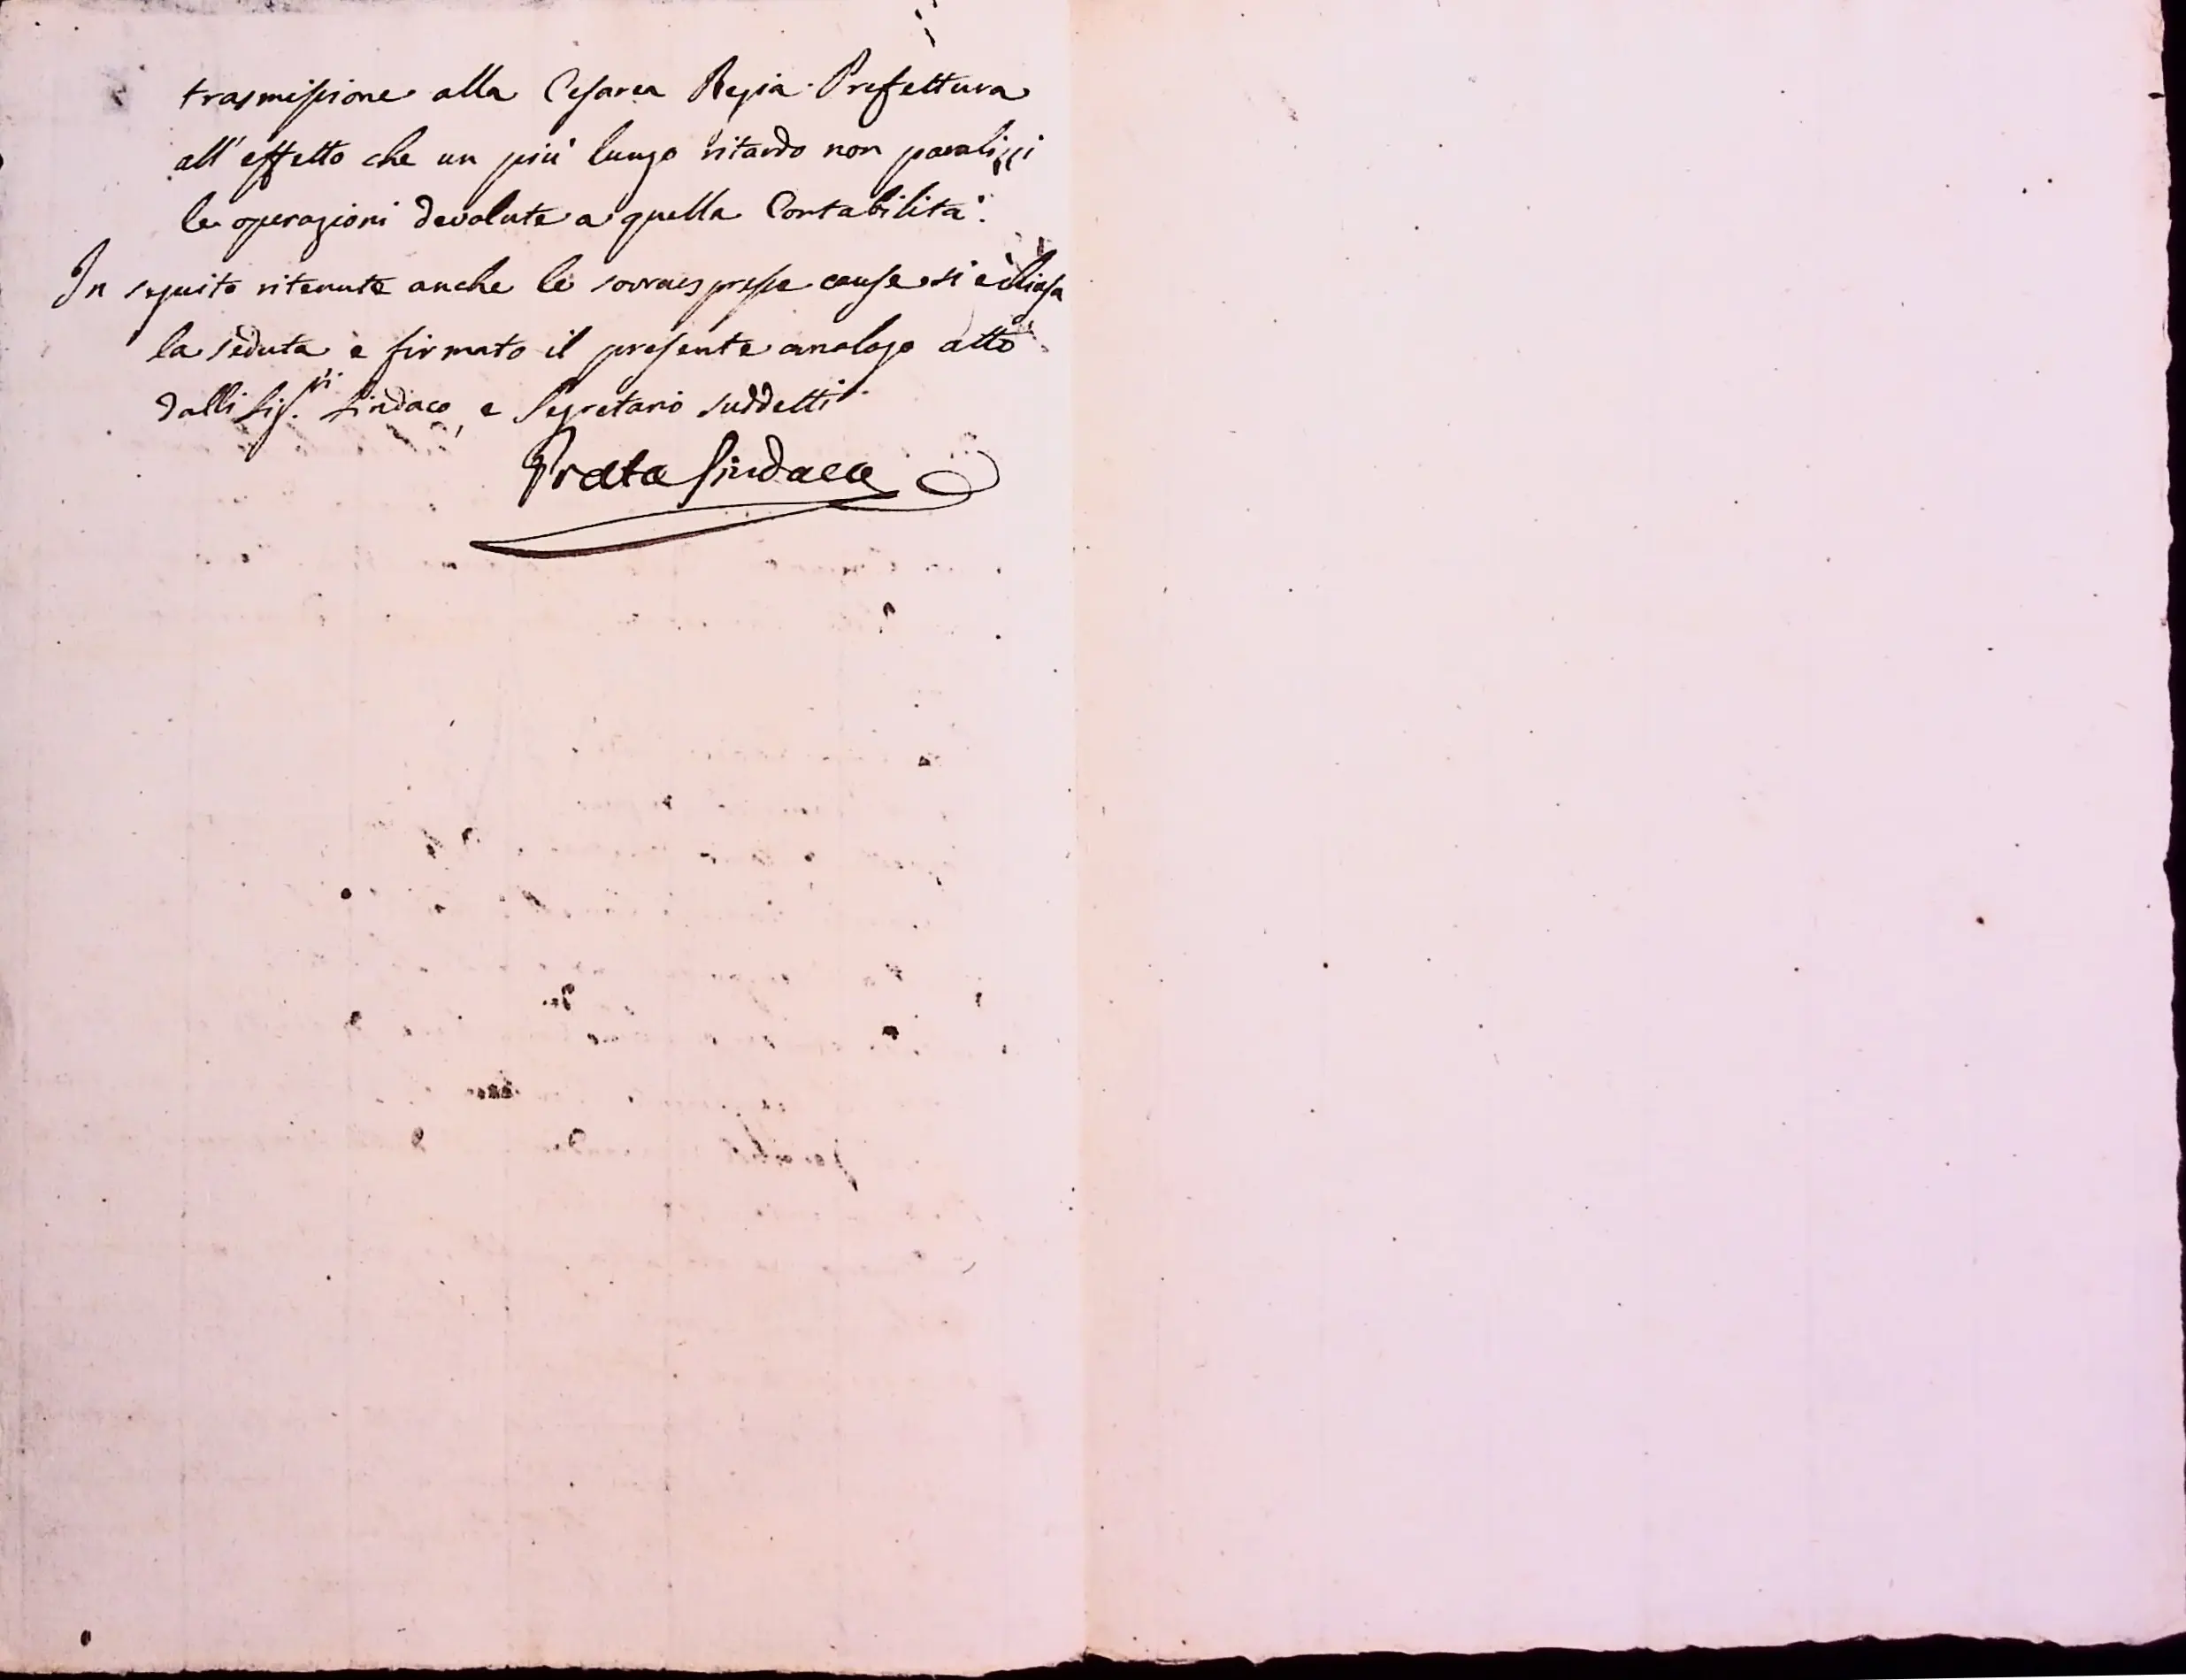 trasmissione alla Cesarea Regia Prefettura
all'effetto che un più lungo ritardo non paralizzi
le operazioni devolute a quella Contabilità.
In seguito ritenute anche le sovraespresse cause si è chiusa
la seduta e firmato il presente analogo atto
dalli Sig.ri Sindaco, e Segretario suddetti.
Prata Sindaco